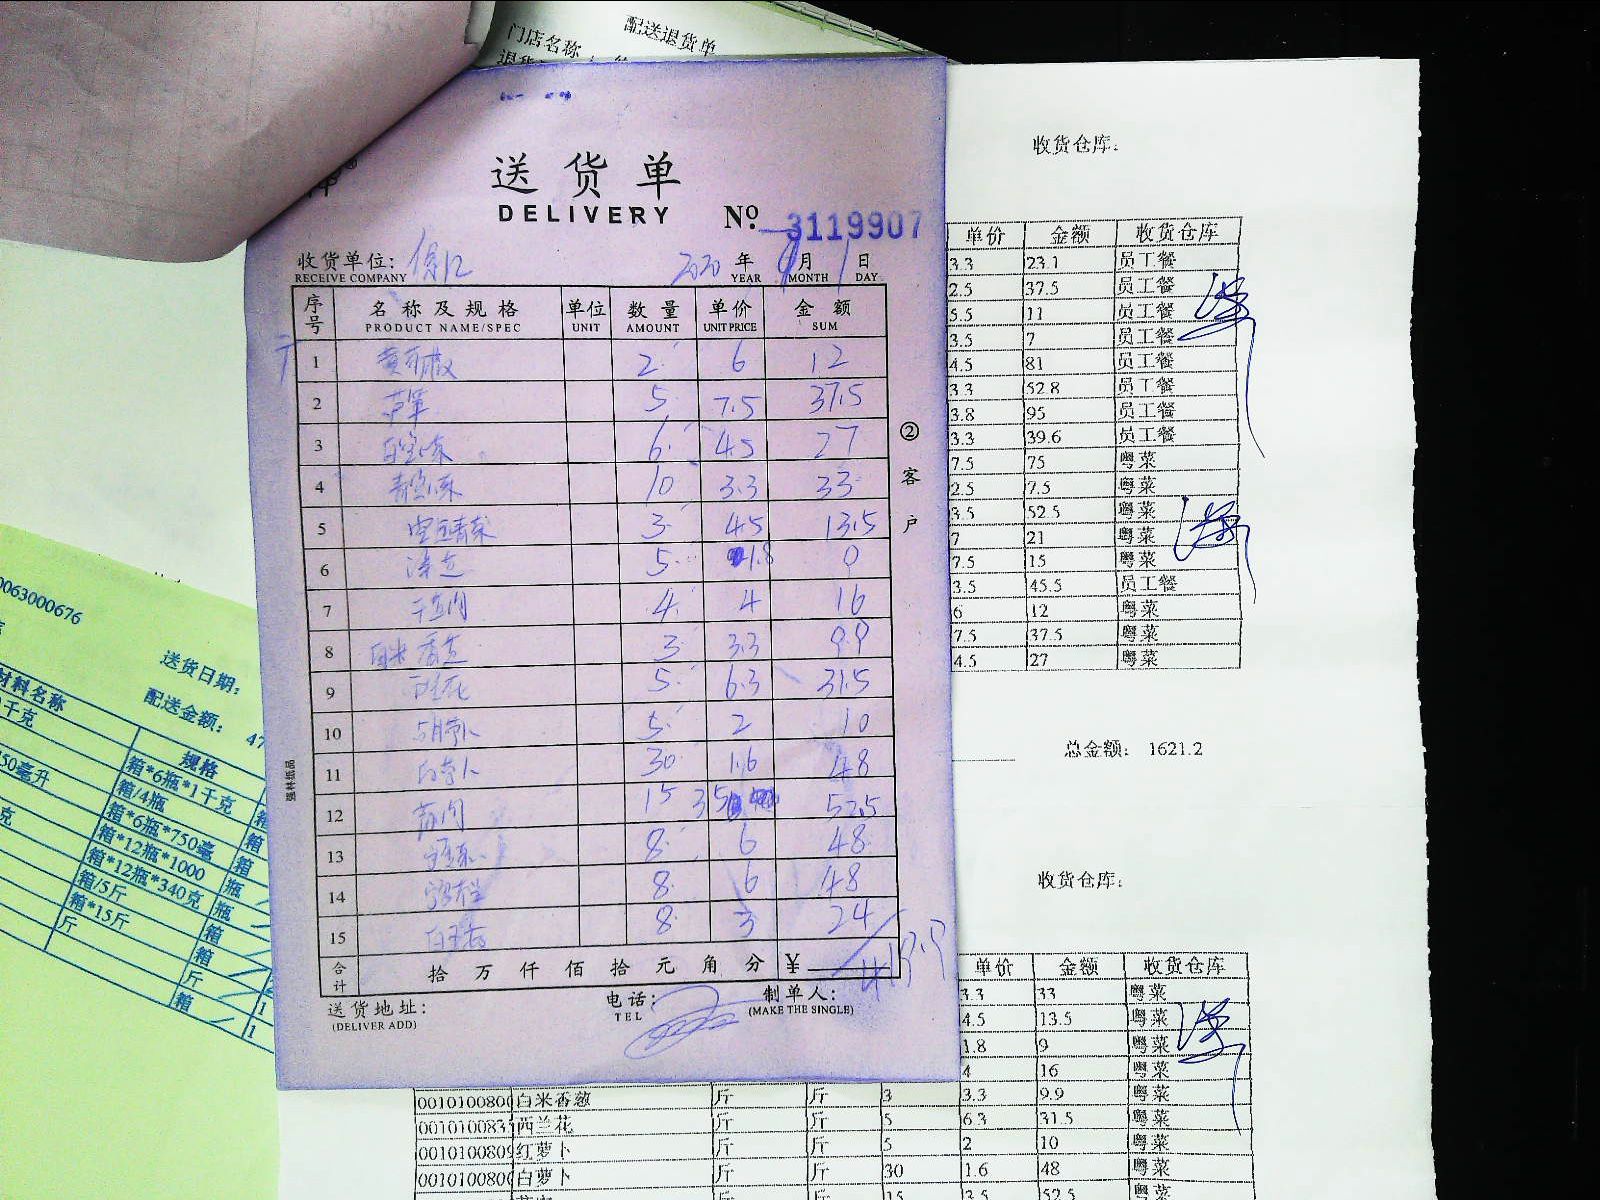 配送退货单
门店名称
送货单
DELIVERY
№ 3119907
收货单位:
RECEIVE COMPANY
2020 年 月 1 日
YEAR MONTH DAY
序号 名称及规格 单位 数量 单价 金额
PRODUCT NAME/SPEC UNIT AMOUNT UNIT PRICE SUM
1 2 6 12
2 芦笋 5 7.5 37.5
3 6 4.5 27
4 10 3.3 33
5 3 4.5 13.5
6 5 1.8
7 4 4 16
8 白米香葱 3 3.3 9.9
9 5 6.3 31.5
10 5 2 10
11 白萝卜 30 1.6 48
12 15 3.5 52.5
13 8 6 48
14 8 6 48
15 8 3 24
合计 拾 万 仟 佰 拾 元 角 分 ¥
送货地址:
(DELIVER ADD)
电话:
TEL
制单人:
(MAKE THE SINGLE)
② 客户
强林纸品
收货仓库:
单价 金额 收货仓库
3.3 23.1 员工餐
2.5 37.5 员工餐
5.5 11 员工餐
3.5 7 员工餐
4.5 81 员工餐
3.3 52.8 员工餐
3.8 95 员工餐
3.3 39.6 员工餐
7.5 75 粤菜
2.5 7.5 粤菜
3.5 52.5 粤菜
7 21 粤菜
7.5 15 粤菜
3.5 45.5 员工餐
6 12 粤菜
7.5 37.5 粤菜
4.5 27 粤菜
总金额: 1621.2
收货仓库:
单价 金额 收货仓库
3.3 33 粤菜
4.5 13.5 粤菜
1.8 9 粤菜
4 16 粤菜
白米香葱 斤 斤 3 3.3 9.9 粤菜
西兰花 斤 斤 5 6.3 31.5 粤菜
红萝卜 斤 斤 5 2 10 粤菜
白萝卜 斤 斤 30 1.6 48 粤菜
15 3.5 52.5 粤菜
0063000676
送货日期:
配送金额: 47
材料名称 规格
千克 箱*6瓶*1千克
50毫升 箱/4瓶 箱
箱*6瓶*750毫 箱
克 箱*12瓶*1000 瓶
箱*12瓶*340克 瓶
箱/5斤 箱
箱*15斤 箱
斤 斤 1
箱 1